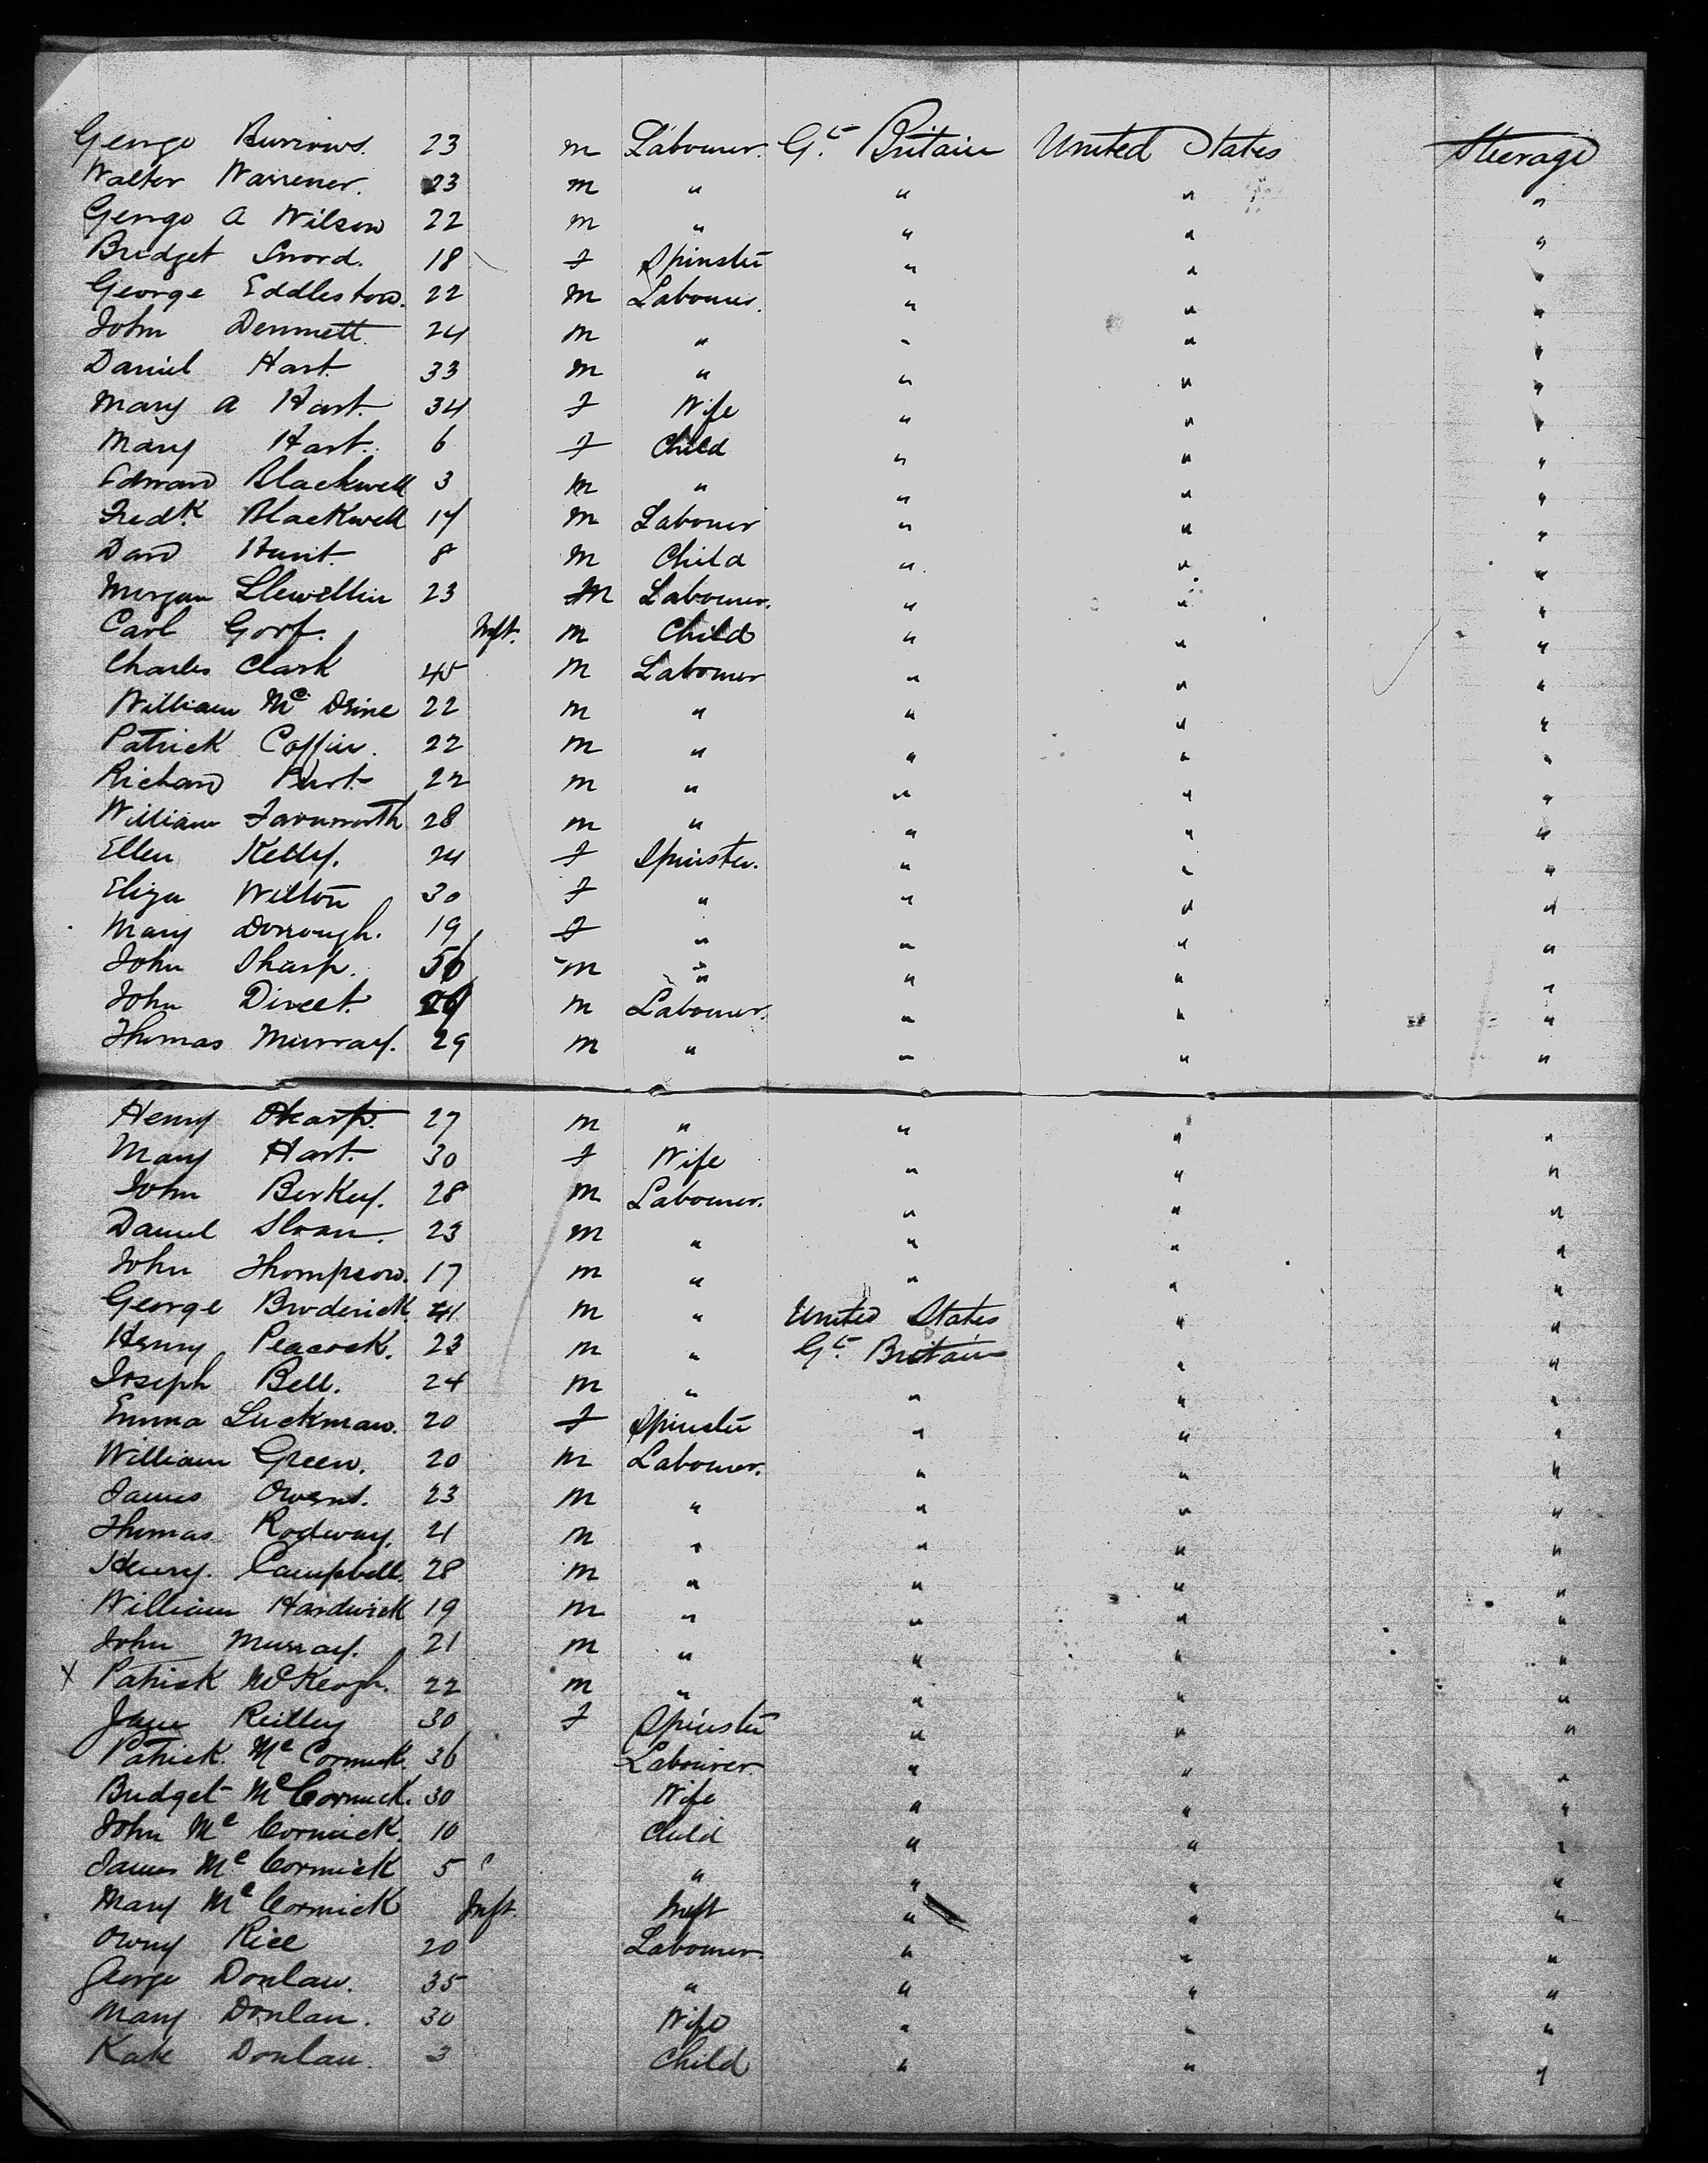 George Burrows. 23 m Labourer. Gt. Britain United States Steerage
Walter Warrener. 23 m " " " "
George A Wilson 22 m " " " "
Bridget Sword. 18 f Spinster " " "
George Eddleston. 22 m Labourer. " " "
John Dennett. 24 m " " " "
Daniel Hart. 33 m " " " "
Mary A Hart. 34 f Wife " " "
Mary Hart. 6 f Child " " "
Edward Blackwell 3 m " " " "
Fredk. Blackwell 17 m Labourer " " "
David Hunt. 8 m Child " " "
Morgan Llewellin 23 m Labourer. " " "
Carl Gorf. Inft. m Child " " "
Charles Clark 45 m Labourer " " "
William Mc 22 m " " " "
Patrick Coffin. 22 m " " " "
Richard Burt. 22 m " " " "
William Farnworth 28 m " " " "
Ellen Kelly. 24 f Spinster. " " "
Eliza Wilton 30 f " " " "
Mary Dorrough. 19 f " " " "
John Sharp. 56 m " " " "
John Direct. m Labourer. " " "
Thomas Murray. 29 m " " " "
Henry Sharp. 27 m " " " "
Mary Hart. 30 f Wife " " "
John Berkey. 28 m Labourer. " " "
Daniel Sloan. 23 m " " " "
John Thompson. 17 m " " " "
George Broderick. 41 m " United States " "
Henry Peacock. 23 m " Gt. Britain " "
Joseph Bell. 24 m " " " "
Emma Luckman. 20 f Spinster " " "
William Green. 20 m Labourer. " " "
James Owens. 23 m " " " "
Thomas Rodway. 21 m " " " "
Henry. Campbell. 28 m " " " "
William Hardwick 19 m " " " "
John Murray. 21 m " " " "
X Patrick McKeogh. 22 m " " " "
Jane Reilley 30 f Spinster " " "
Patrick. Mc Cormick. 36 Labourer " " "
Bridget Mc Cormick. 30 Wife " " "
John Mc Cormick. 10 Child " " "
James Mc Cormick 5 " " " "
Mary Mc Cormick Inft. Inft " " "
Owny Rice 20 Labourer. " " "
George Donlan. 35 " " " "
Mary Donlan. 30 Wife " " "
Kate Donlan. 3 Child " " "